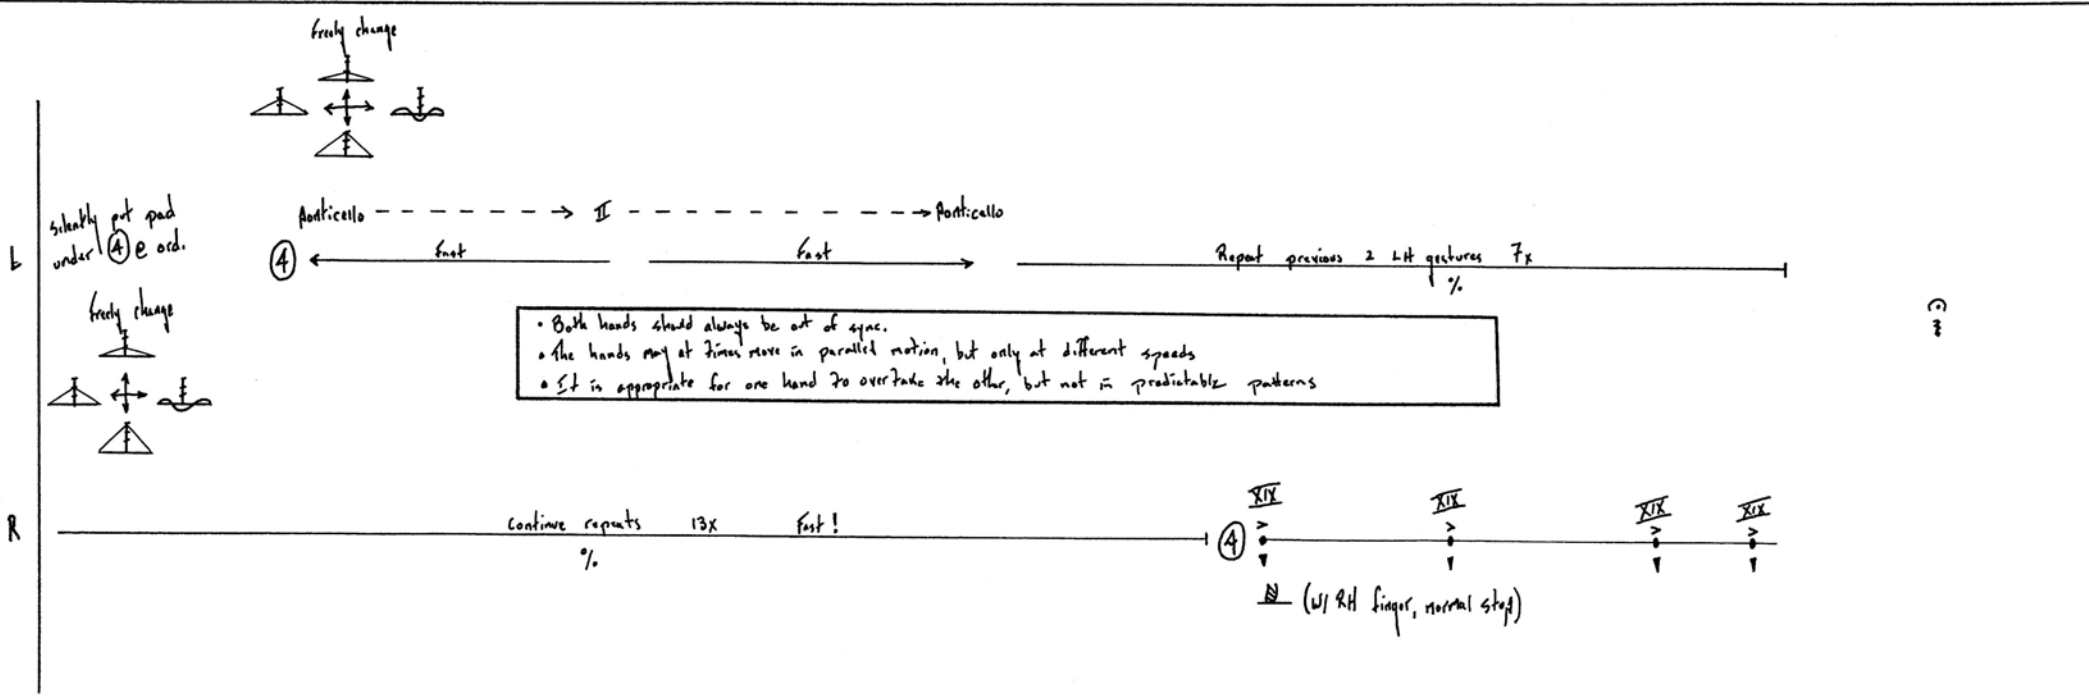 freely change
Silently put pad
under ④ @ ord.
Ponticello II Ponticello
L
④ Fast Fast Repeat previous 2 LH gestures 7x
%
freely change
• Both hands should always be out of sync.
• The hands may at times move in parallel motion, but only at different speeds
• It is appropriate for one hand to overtake the other, but not in predictable patterns
XIX XIX XIX XIX
> > > >
R
Continue repeats 13x Fast! ④
%
(w/ RH finger, normal stop)